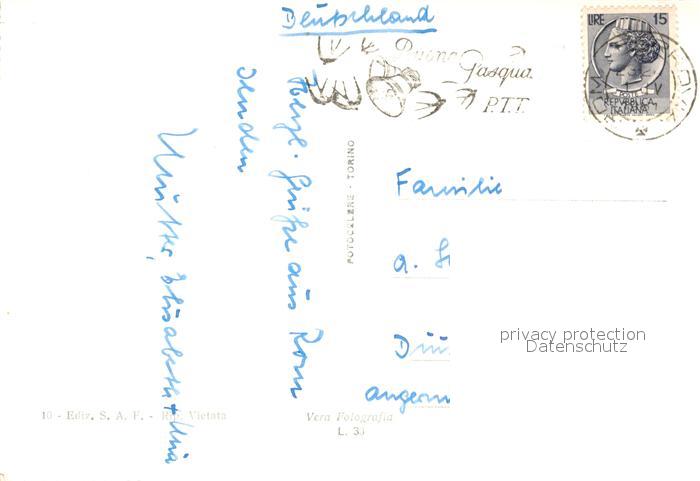 Deutschland
Buona Pasqua
P.T.T.
LIRE 15
REPVBBLICA
ITALIANA
ROMA
Herzl. Grüße aus Rom
senden
Mutter, Elisabeth +
FOTOCELERE - TORINO
Familie
a.
privacy protection
Datenschutz
10 - Ediz. S. A. F. - Rip. Vietata
Vera Fotografia
L. 30